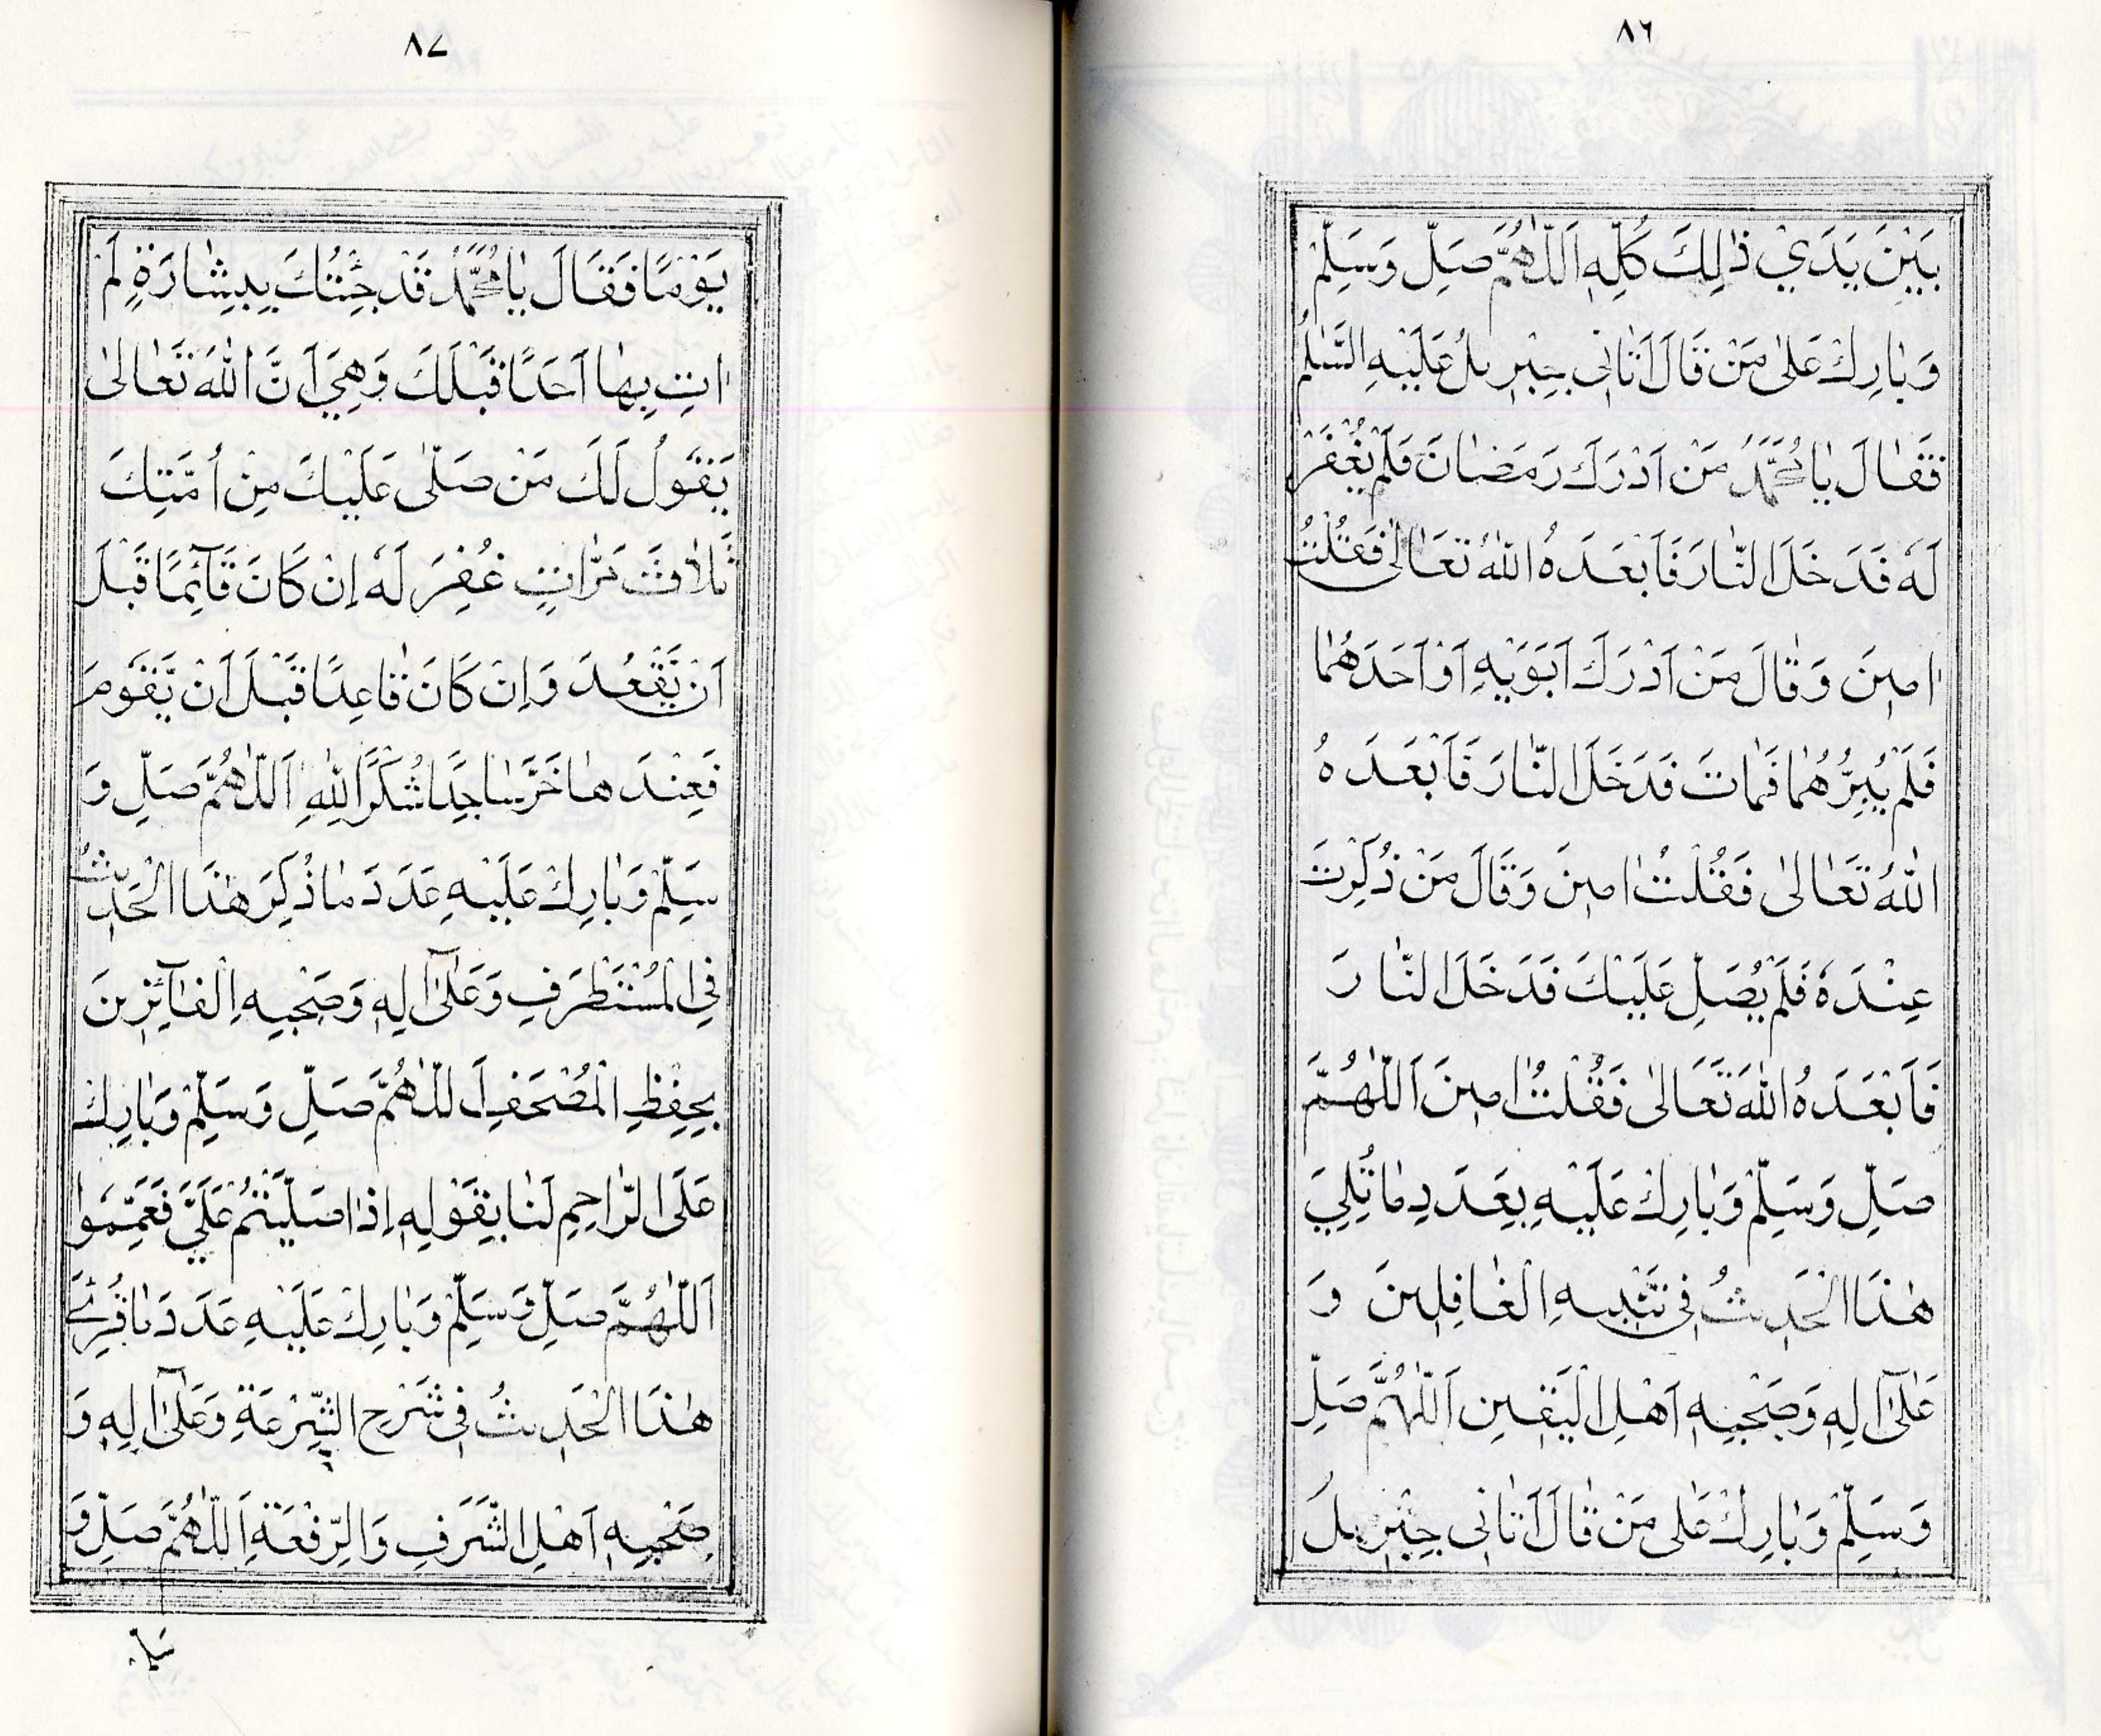 ٨٦
بَيْنَ يَدَيْ ذٰلِكَ كُلِّهٖ اَللّٰهُمَّ صَلِّ وَسَلِّمْ
وَبٰارِكْ عَلىٰ مَنْ قَالَ اَتٰانٖى جِبْرٖيلُ عَلَيْهِ السَّلٰمُ
فَقٰالَ يٰا مُحَمَّدُ مَنْ اَدْرَكَ رَمَضٰانَ فَلَمْ يُغْفَرْ
لَهٗ فَدَخَلَ النّٰارَ فَاَبْعَدَهُ اللّٰهُ تَعٰالىٰ فَقُلْتُ
اٰمٖينَ وَقٰالَ مَنْ اَدْرَكَ اَبَوَيْهِ اَوْ اَحَدَهُمٰا
فَلَمْ يُبِرَّهُمٰا فَمٰاتَ فَدَخَلَ النّٰارَ فَاَبْعَدَهُ
اللّٰهُ تَعٰالىٰ فَقُلْتُ اٰمٖينَ وَقَالَ مَنْ ذُكِرْتَ
عِنْدَهٗ فَلَمْ يُصَلِّ عَلَيْكَ فَدَخَلَ النّٰارَ
فَاَبْعَدَهُ اللّٰهُ تَعَالىٰ فَقُلْتُ اٰمٖينَ اَللّٰهُمَّ
صَلِّ وَسَلِّمْ وَبٰارِكْ عَلَيْهِ بِعَدَدِ مٰا تُلِيَ
هٰذَا الْحَدٖيثُ فٖى تَنْبٖيهِ الْغٰافِلٖينَ وَ
عَلىٰٓ اٰلِهٖ وَصَحْبِهٖ اَهْلِ الْيَقٖينِ اَللّٰهُمَّ صَلِّ
وَسَلِّمْ وَبٰارِكْ عَلٰى مَنْ قٰالَ اَتٰانٖى جِبْرٖيلَ
٨٧
يَوْمًا فَقٰالَ يٰا مُحَمَّدُ قَدْ جِئْتُكَ بِبِشٰارَةٍ لَمْ
اٰتِ بِهٰا اَحَدًا قَبْلَكَ وَهِيَ اَنَّ اللّٰهَ تَعٰالىٰ
يَقُولُ لَكَ مَنْ صَلّٰى عَلَيْكَ مِنْ اُمَّتِكَ
ثَلاٰثَ مَرّٰاتٍ غُفِرَ لَهٗ اِنْ كَانَ قَآئِمًا قَبْلَ
اَنْ يَقْعُدَ وَاِنْ كَانَ قٰاعِدًا قَبْلَ اَنْ يَقُومَ
فَعِنْدَهٰا خَرَّ سٰاجِدًا شُكْرًا لِلّٰهِ اَللّٰهُمَّ صَلِّ وَ
سَلِّمْ وَبٰارِكْ عَلَيْهِ عَدَدَ مٰا ذُكِرَ هٰذَا الْحَدٖيثُ
فِي الْمُسْتَظْرَفِ وَعَلىٰٓ اٰلِهٖ وَصَحْبِهِ الْفٰآئِزٖينَ
بِحِفْظِ الْمُصْحَفِ اَللّٰهُمَّ صَلِّ وَسَلِّمْ وَبٰارِكْ
عَلَى الرّٰاحِمِ لَنٰا بِقَوْلِهٖ اِذٰا صَلَّيْتُمْ عَلَيَّ فَعَمِّمُوا
اَللّٰهُمَّ صَلِّ وَسَلِّمْ وَبٰارِكْ عَلَيْهِ عَدَدَ مٰا قُرِئَ
هٰذَا الْحَدٖيثُ فٖى شَرْحِ الشِّرْعَةِ وَعَلىٰٓ اٰلِهٖ وَ
صَحْبِهٖ اَهْلِ الشَّرَفِ وَالرِّفْعَةِ اَللّٰهُمَّ صَلِّ وَ
سَلِّمْ